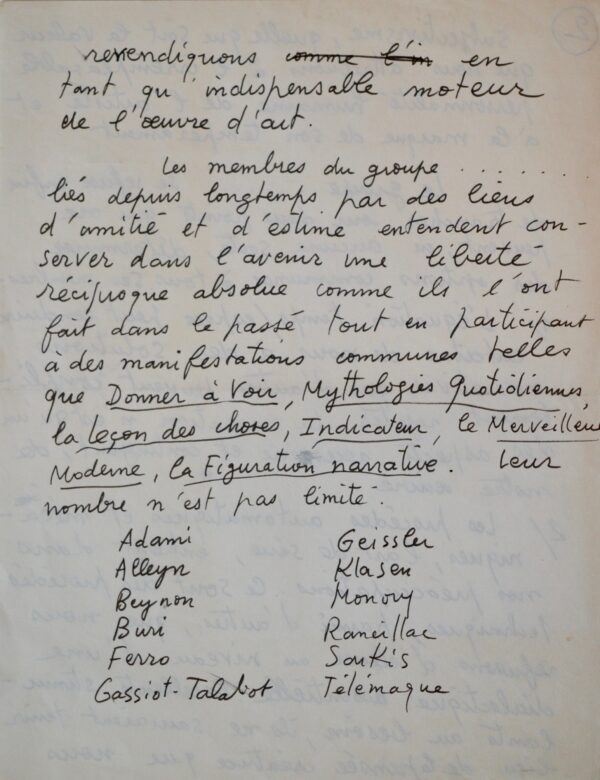 revendiquons comme l'in en
tant qu'indispensable moteur
de l'œuvre d'art.
Les membres du groupe ........
liés depuis longtemps par des liens
d'amitié et d'estime entendent con-
server dans l'avenir une liberté
réciproque absolue comme ils l'ont
fait dans le passé tout en participant
à des manifestations communes telles
que Donner à Voir, Mythologies Quotidiennes,
la Leçon des choses, Indicateur, le Merveilleu
Moderne, la Figuration narrative. Leur
nombre n'est pas limité.
Adami Geissler
Alleyn Klasen
Beynon Monory
Buri Rancillac
Ferro Saukis
Gassiot-Talabot Télémaque